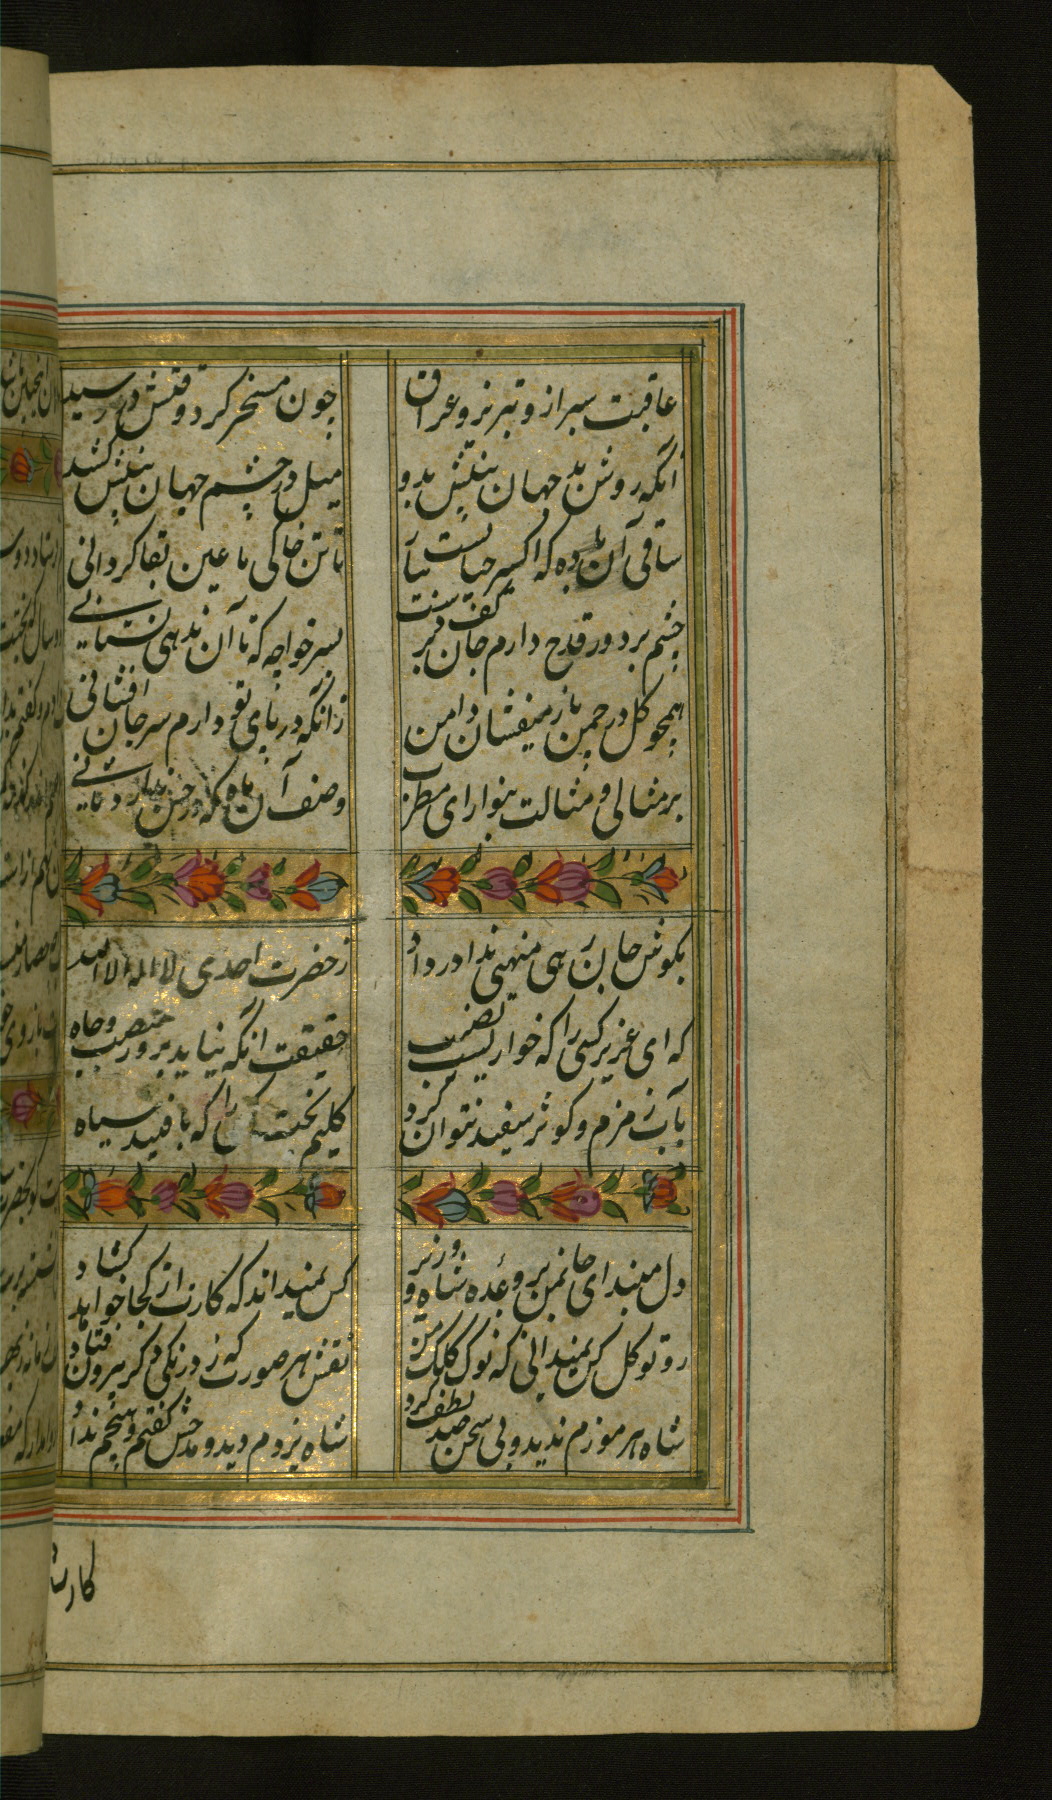 عاقبت سیراز و تبریز و عراق
چون مسخر کرد وقتش در رسید
آنکه روشن بد جهان بینش بدو
میل در چشم جهان بینش کشید
ساقی آن باده که اکسیر حیاتست بیار
تا تن خاکی ما عین بقا گردانی
چشم بر دور قدح دارم و جان بر کفت
بسر خواجه که تا آن ندهی نستانی
همچو گل در چمن باز میفشان دامن
زانکه در پای تو دارم سر جان افشانی
بر مثالی و مثالت بنواز ای مطرب
وصف آن ماه که در حسن ندارد ثانی
بگوش جان رهی منهی ندا در داد
ز حضرت احدی لا اله الا الله
که ای عزیز کسی را که خواریست نصیب
حقیقت آنکه نیابد بزور منصب و جاه
بآب زمزم و کوثر سفید نتوان کرد
گلیم بخت کسی را که بافتند سیاه
دل مبند ای جانمن بر وعده شاه و وزیر
کس نمیداند که کارت از کجا خواهد گشاد
رو توکل کن نمیدانی که نوک کلک من
نقش هر صورت که زد رنگی دگر بیرون فتاد
شاه هرموزم ندید و بی سخن صد لطف کرد
شاه یزدم دید و مدحش گفتم و هیچم نداد
کار شا